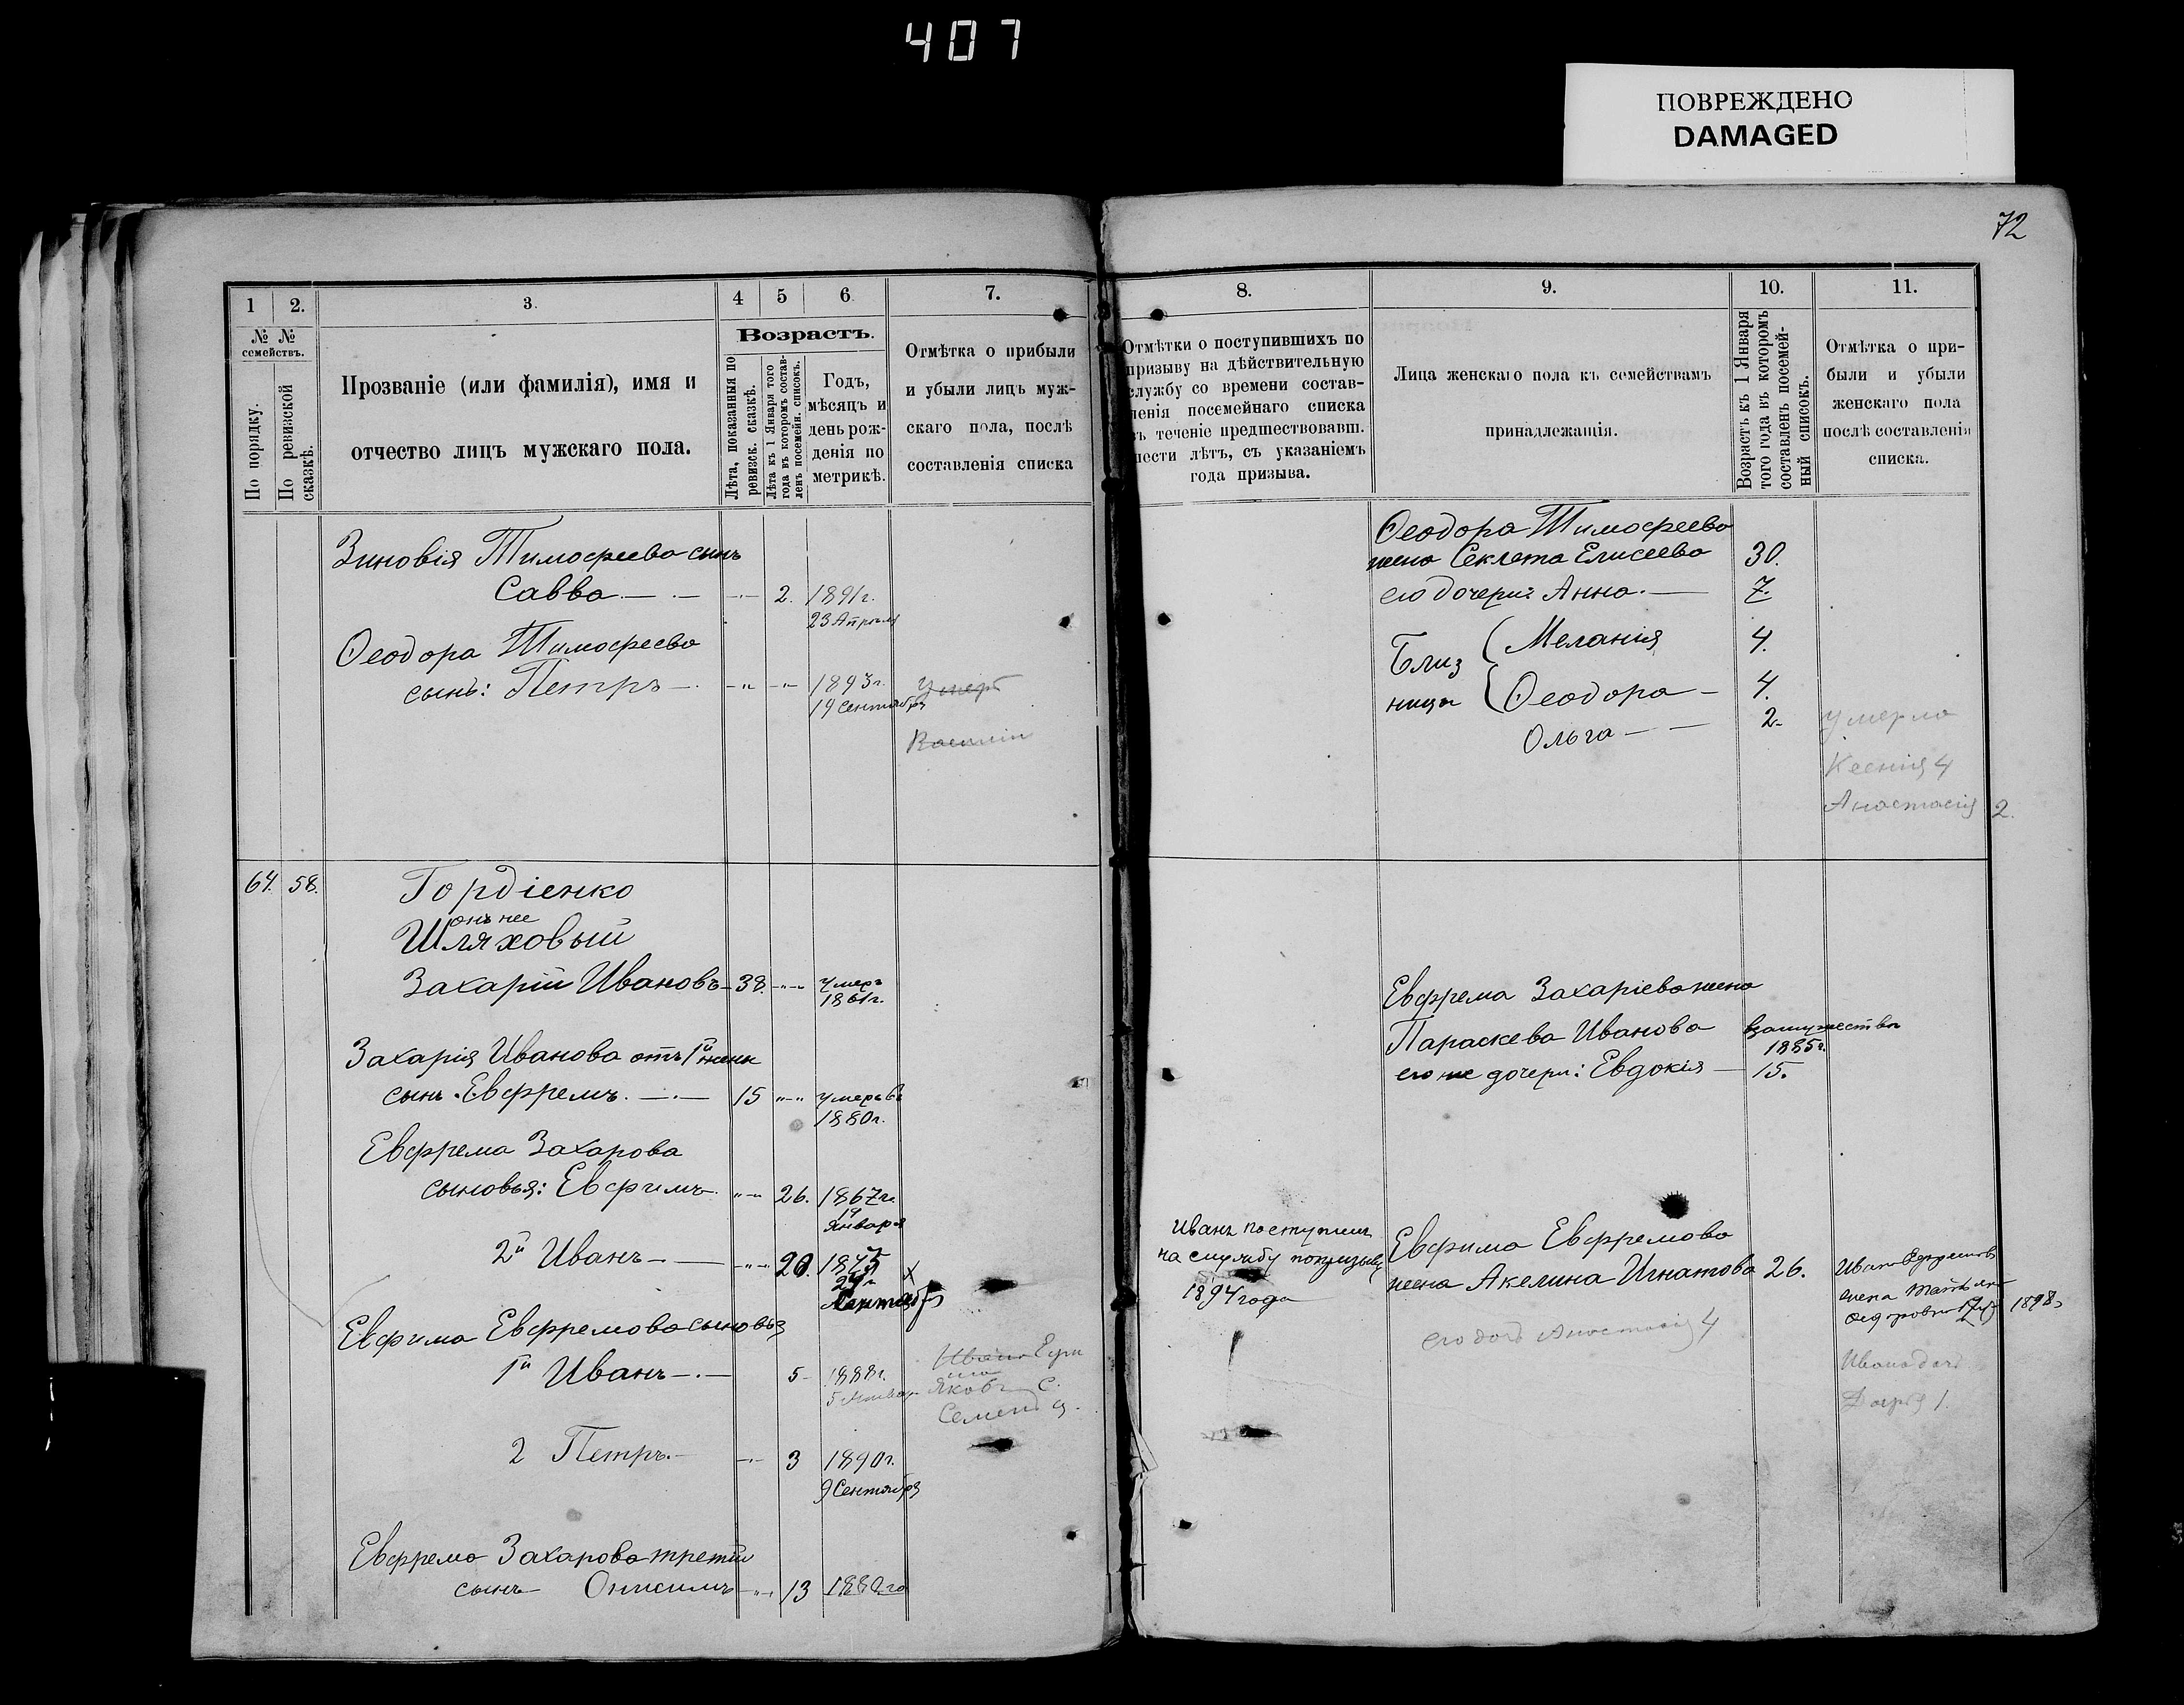 407
ПОВРЕЖДЕНО
DAMAGED
72
1
2.
3.
4
5
6
7.
№ №
семействъ.
По порядку.
По ревизской сказкѣ.
Прозваніе (или фамилія), имя и
отчество лицъ мужскаго пола.
Возрастъ.
Лѣта, показанныя по
ревизск. сказкѣ.
Лѣта къ 1 Января того
года въ которомъ состав-
ленъ посемейн. списокъ.
Годъ,
мѣсяцъ и
день рож-
денія по
метрикѣ.
Отмѣтка о прибыли
и убыли лицъ муж-
скаго пола, послѣ
составленія списка
Зиновія Тимофеева сынъ
Савва 2. 1891г.
23 Апрѣля
Ѳеодора Тимофеева
сынъ: Петръ 1893г. умеръ
19 Сентября
Василій
64. 58. Гордіенко
онъ же
Шляховый
Захарій Ивановъ 38. умеръ
1861г.
Захарія Иванова отъ 1й жены
сынъ Ефремъ 15 умеръ въ
1880г.
Ефрема Захарова
сыновья: Ефимъ 26. 1867г.
19
Января
2й Иванъ 20.
Ефима Ефремова сыновья
1й Иванъ 5 1888г.
Яковъ
Семенъ
2 Петръ 3 1890г.
9 Сентября
Ефрема Захарова третій
сынъ Онисимъ 13 1880го
8.
9.
10.
11.
Отмѣтки о поступившихъ по
призыву на дѣйствительную
службу со времени состав-
ленія посемейнаго списка
въ теченіе предшествовавш.
шести лѣтъ, съ указаніемъ
года призыва.
Лица женскаго пола къ семействамъ
принадлежащія.
Возрастъ къ 1 Января
того года въ которомъ
составленъ посемей-
ный списокъ.
Отмѣтка о при-
были и убыли
женскаго пола
послѣ составленія
списка.
Ѳеодора Тимофеева
жена Секлета Елисеева 30.
его дочери: Анна 7.
Близ Меланія 4.
ницы Ѳеодора 4.
Ольга 2. умерла
Ксенія 4
Анастасія 2.
Ефрема Захаріева жена
Параскева Иванова взамужестве
1885г.
его же дочери: Евдокія 15.
Иванъ поступилъ
на службу по призыву
1894 года
Ефима Ефремова
жена Акелина Игнатова 26.
его дочь Анастасія 4
Ивана Ефремова
жена
1898
Ивана дочь
Дарія 1.